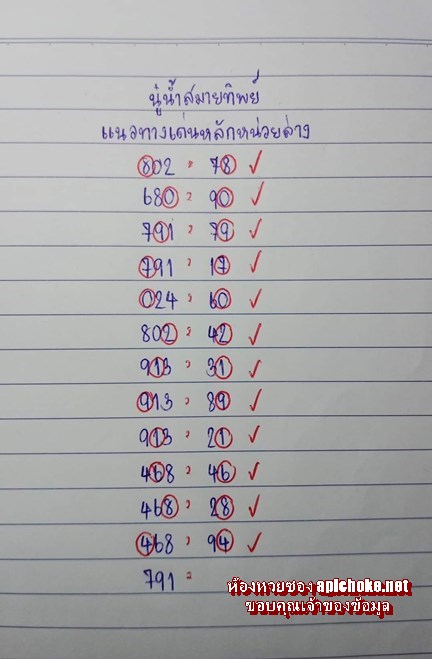 นู่น้ำสมายทิพย์
แนวทางเด่นหลักหน่วยล่าง
802 = 78 ✓
680 = 90 ✓
791 = 79 ✓
791 = 17 ✓
024 = 60 ✓
802 = 42 ✓
913 = 31 ✓
913 = 89 ✓
913 = 21 ✓
468 = 46 ✓
468 = 28 ✓
468 = 94 ✓
791 =
ห้องหวยซอง apichoke.net
ขอบคุณเจ้าของข้อมูล